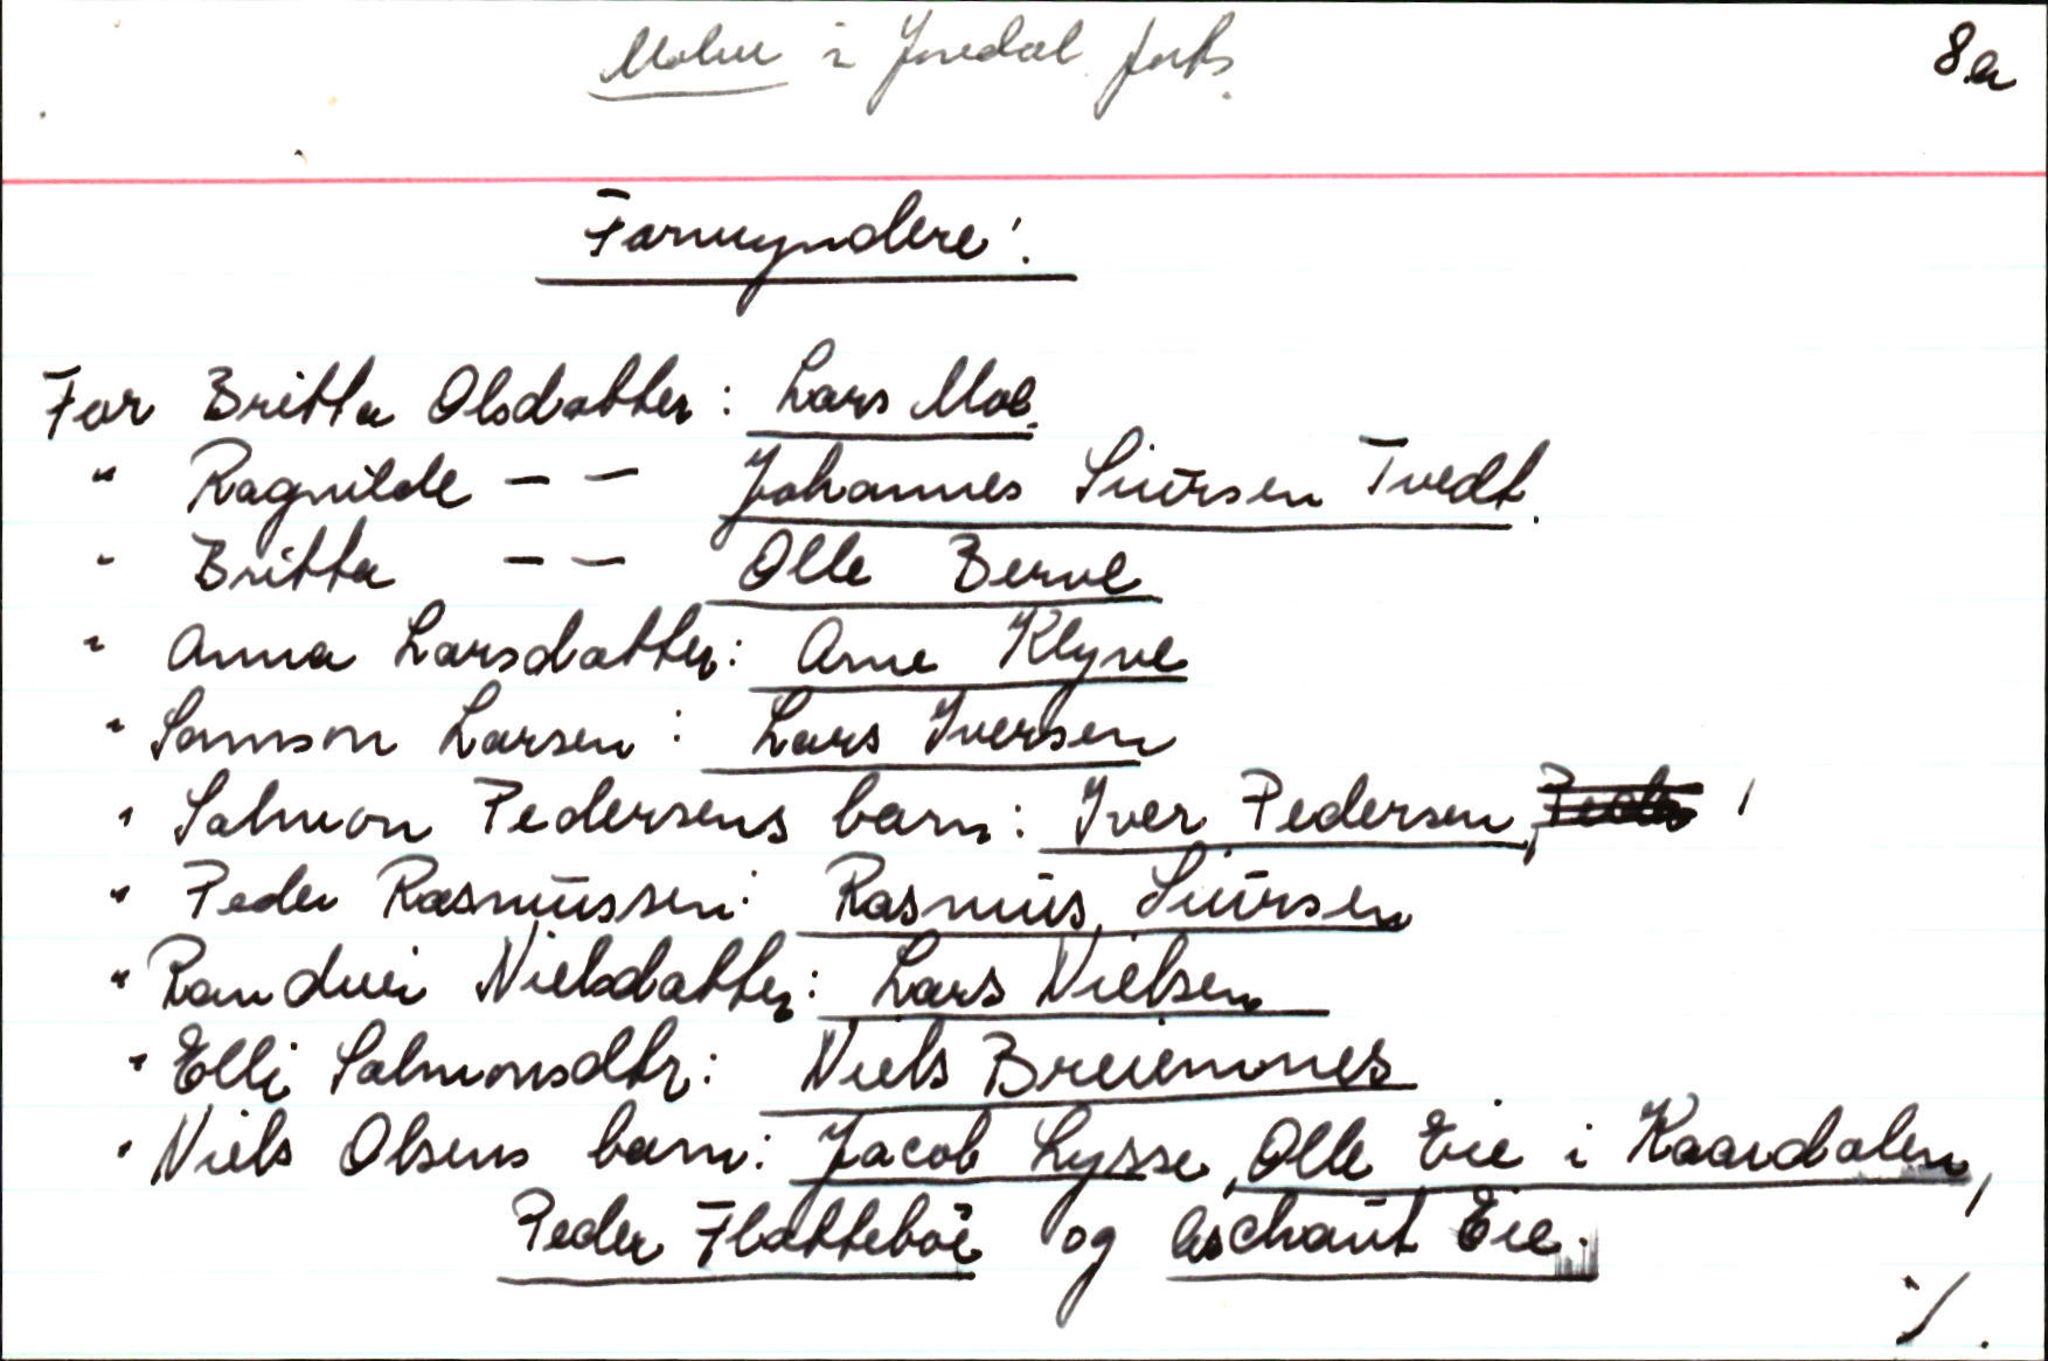 i Jondal forts.
8a
Formyndere:
For Britta Olsdatter: Lars Moe.
" Ragnilde – – Johannes Siursen Tvedt.
" Britta – – Olle Berve
" Anna Larsdatter: Arne Klyve
" Samson Larsen: Lars Iversen
" Salmon Pedersens barn: Iver Pedersen,
" Peder Rasmussen: Rasmus Siursen
" Randvei Nielsdatter: Lars Nielsen
" Elli Salmonsdtr: Niels Breiemones
" Niels Olsens barn: Jacob Lysse, Olle Eie i Kaardalen,
Peder Flatteboe og Aschaut Eie.
./.